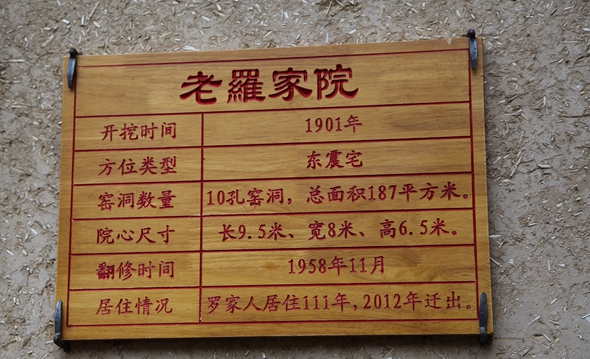 老羅家院
开挖时间 1901年
方位类型 东震宅
窑洞数量 10孔窑洞，总面积187平方米。
院心尺寸 长9.5米、宽8米、高6.5米。
翻修时间 1958年11月
居住情况 罗家人居住111年,2012年迁出。